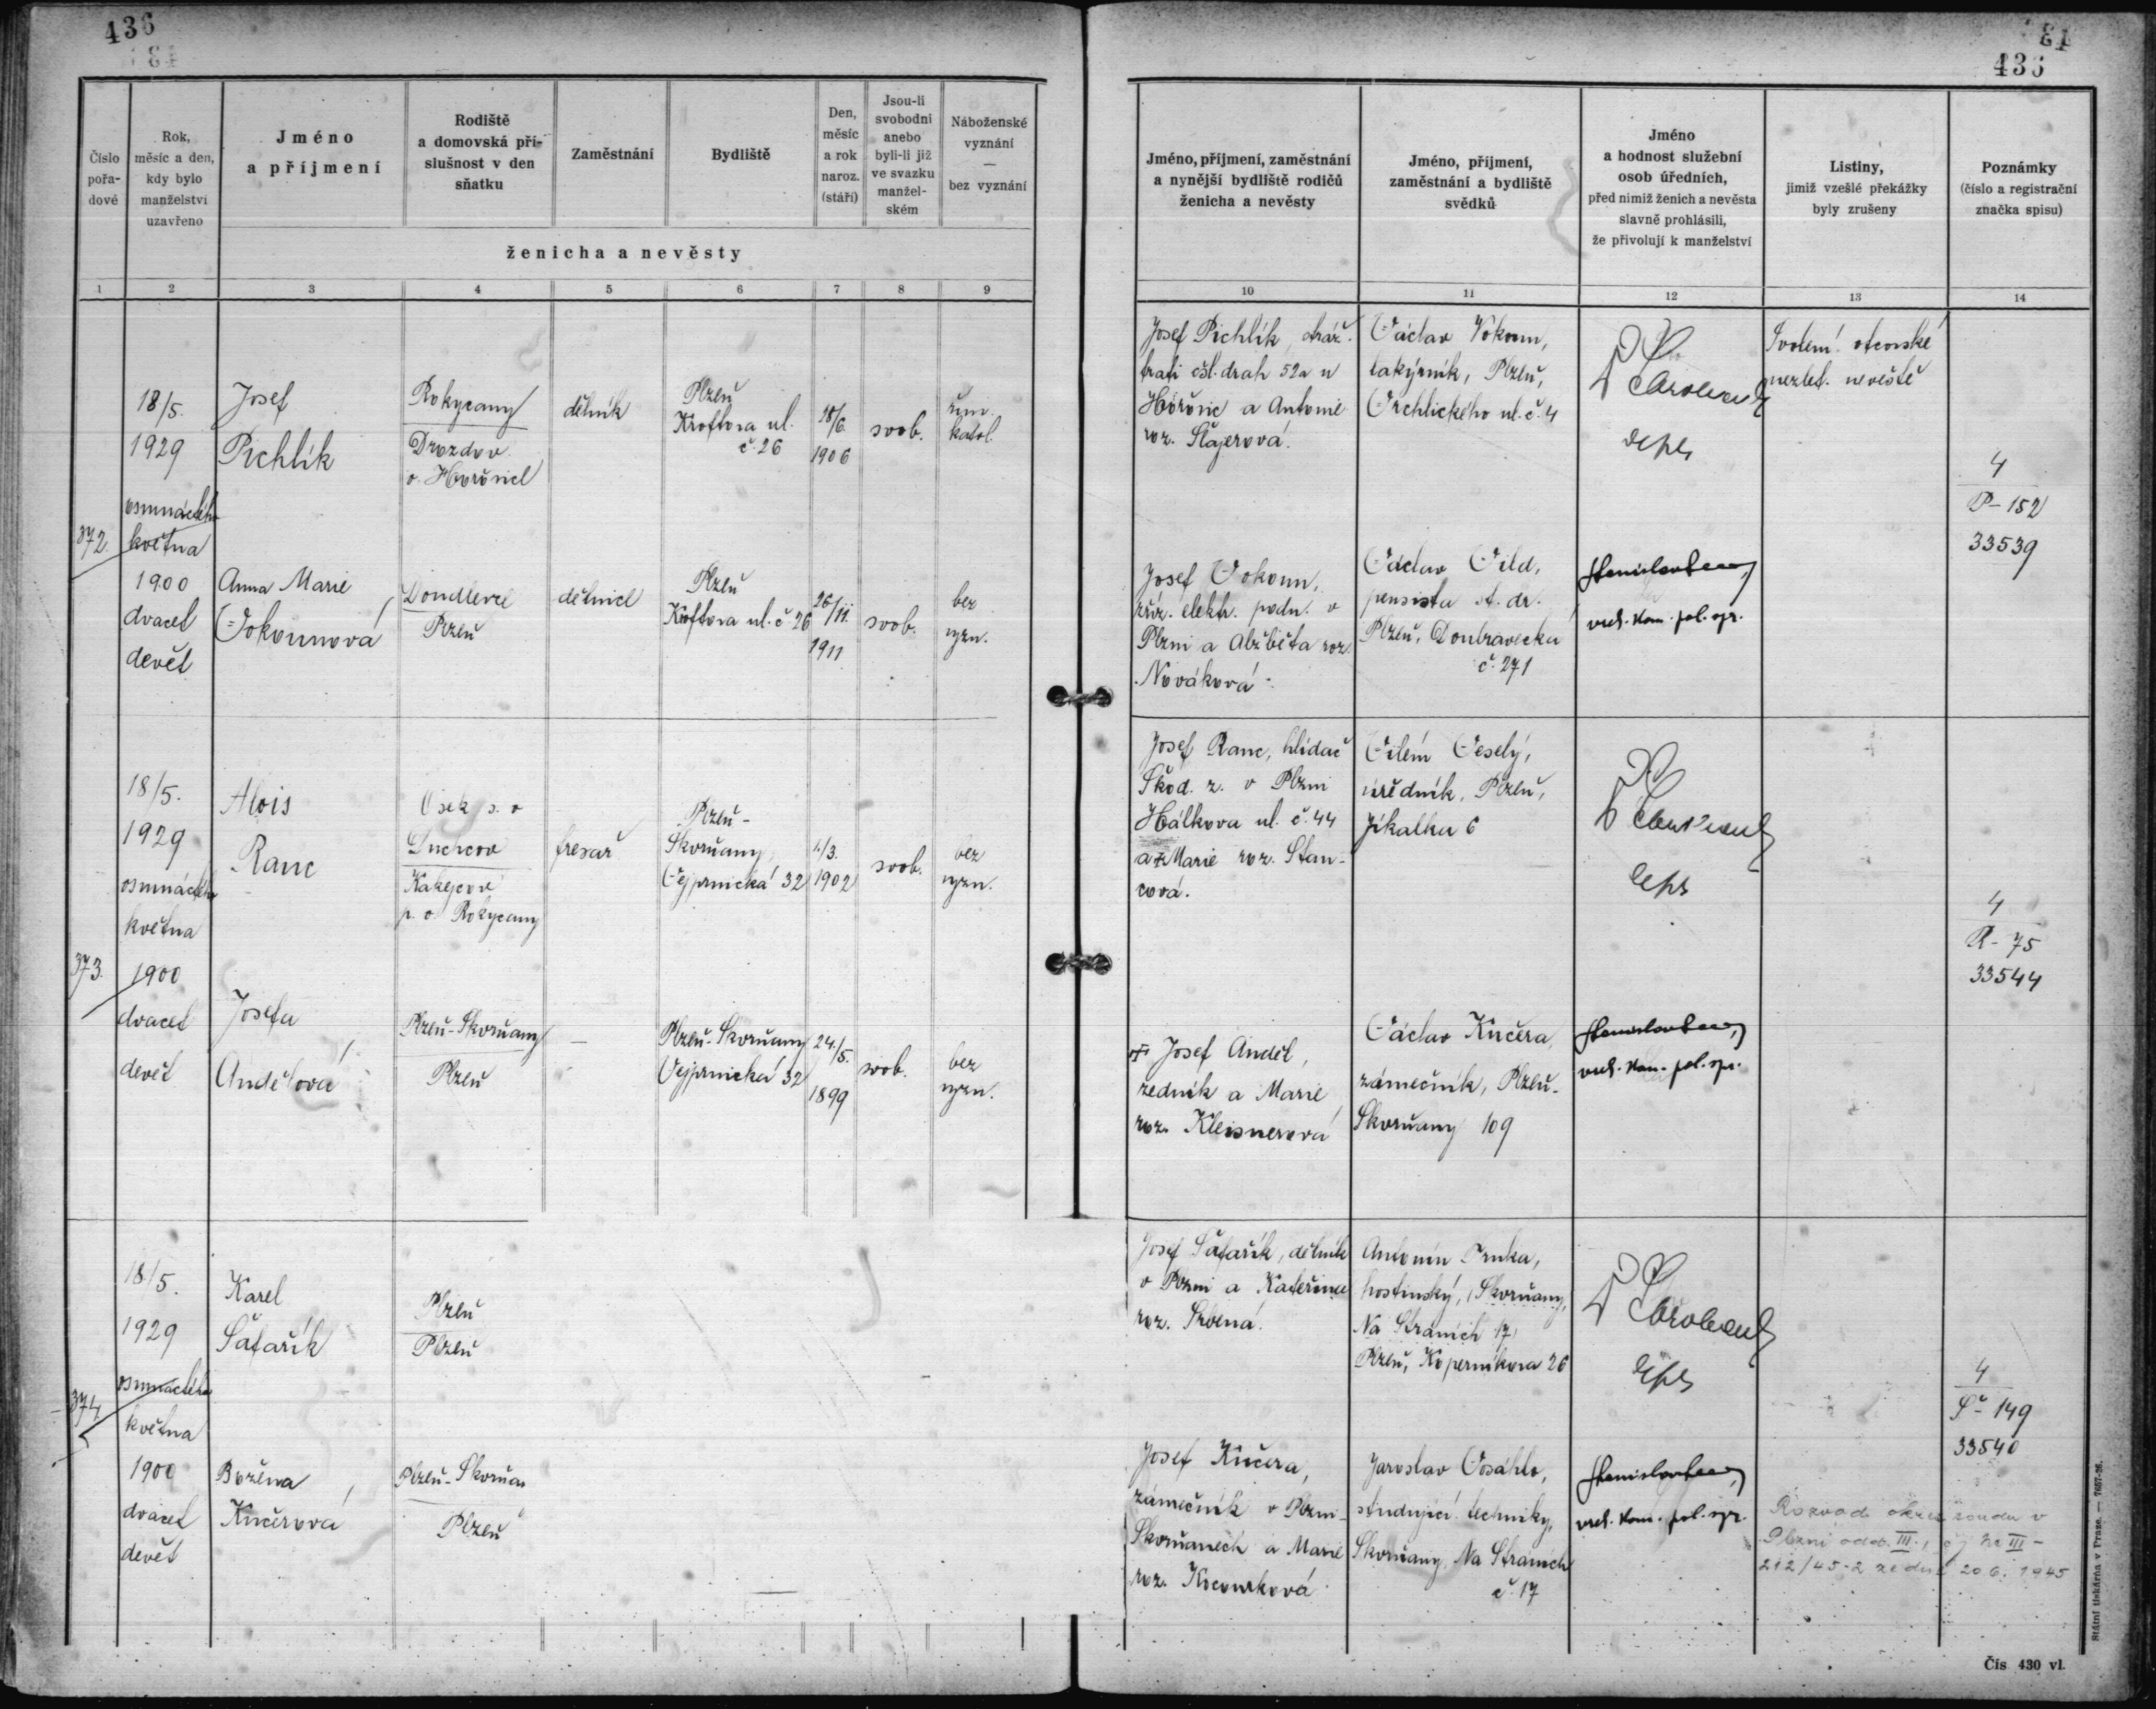 436
436
Číslo pořa- dové
Rok, měsíc a den, kdy bylo manželství uzavřeno
Jméno a příjmení
Rodiště a domovská pří- slušnost v den sňatku
Zaměstnání
Bydliště
Den, měsíc a rok naroz. (stáří)
Jsou-li svobodni anebo byli-li již ve svazku manžel- ském
Náboženské vyznání — bez vyznání
ženicha a nevěsty
Jméno, příjmení, zaměstnání a nynější bydliště rodičů ženicha a nevěsty
Jméno, příjmení, zaměstnání a bydliště svědků
Jméno a hodnost služební osob úředních, před nimiž ženich a nevěsta slavně prohlásili, že přivolují k manželství
Listiny, jimiž vzešlé překážky byly zrušeny
Poznámky (číslo a registrační značka spisu)
1 2 3 4 5 6 7 8 9 10 11 12 13 14
372.
18/5.
1929
osmnáctého
května
1900
dvacet
devět
Josef
Pichlík
Rokycany
Drozdov
o. Hořovice
dělník
Plzeň
Kroftova ul.
č. 26
18/6.
1906
svob.
řím.
katol.
Josef Pichlík, stráž.
trati čsl. drah 52a u
Hořovic a Antonie
roz. Šlajerová.
Václav Vokoun,
Plzeň,
Vrchlického ul. č. 4
Svolení otcovské
nezlet. nevěstě
4
P-152
33539
Anna Marie
Vokounová
Doudlevce
Plzeň
dělnice
Plzeň
Kroftova ul. č 26
26/11.
1911
svob.
bez
vyzn.
Josef Vokoun,
zříz. elektr. podn. v
Plzni a Alžběta roz.
Nováková.
Václav Vild,
pensista st. dr.
Plzeň, Doubravecká
č. 271
vrch. kom. pol. spr.
373.
18/5.
1929
osmnáctého
května
1900
dvacet
devět
Alois
Ranc
Osek s. o
Kakejcov
p. o. Rokycany
fresař
Plzeň-
Skvrňany,
Vejprnická 32
1./3.
1902
svob.
bez
vyzn.
Josef Ranc, hlídač
Škod. z. v Plzni
Hálkova ul. č. 44
a Marie roz. Štan-
cová.
Vilém Veselý,
úředník, Plzeň,
Jikalka 6
4
R-75
33544
Josefa
Andělová
Plzeň-Skvrňany
Plzeň
—
Plzeň-Skvrňany
Vejprnická 32
24./5.
1899
svob.
bez
vyzn.
Josef Anděl,
zedník a Marie
roz. Kleisnerová
Václav Kučera,
zámečník, Plzeň-
Skvrňany 109
vrch. kom. pol. spr.
374.
18./5.
1929
osmnáctého
května
1900
dvacet
devět
Karel
Šafařík
Plzeň
Plzeň
Josef Šafařík, dělník
v Plzni a Kateřina
roz. Srbená.
Antonín Trnka,
hostinský, Skvrňany,
Na Stráních 17,
Plzeň, Koperníkova 26
4
Š-149
33540
Božena
Kučerová
Plzeň-Skvrňan
Plzeň
Josef Kučera,
zámečník v Plzni-
Skvrňanech a Marie
roz. Kocourková
Jaroslav Vosáhlo,
studující techniky,
Skvrňany, Na Stráních
č. 17
vrch. kom. pol. spr.
Rozvod okres. soudu v
Plzni odd. III.,
212/45-2 ze dne 20.6.1945
Státní tiskárna v Praze. — 7657-26.
Čís. 430 vl.